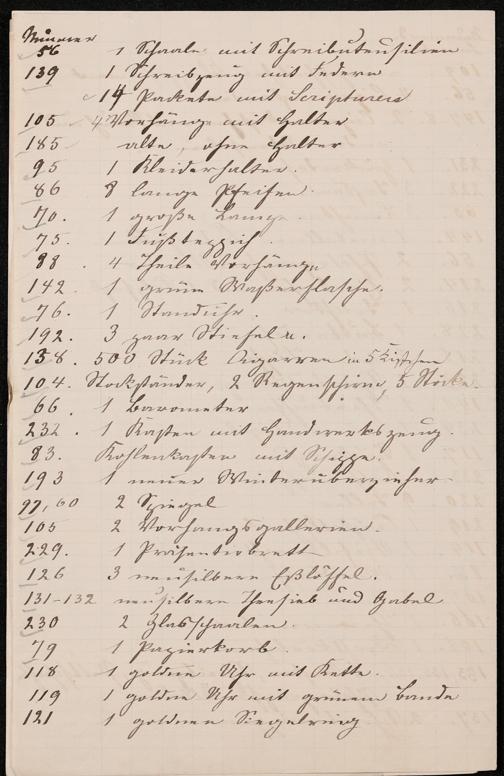 Nummer
56 1 Schaale mit Schreibutensilien
139 1 Schreibzeug mit Federn
14 Packete mit Scripturen
105 4 Vorhänge mit Halter
185 alte, ohne Halter
95 1 Kleiderhalter.
86 8 lange Pfeifen.
70. 1 große Lampe.
75. 1 Fußteppich.
88. 4 Theile Vorhäng
142. 1 grüne Waßerflasche.
76. 1 Standuhr.
192. 3 paar Stiefel
138. 500 Stück Cigarren in 5 Kistchen
104. Stockständer, 2 Regenschirme, 5 Stöcke.
66. 1 Barometer
232. 1 Kasten mit Handwerkszeug.
83. Kohlenkasten mit Schippe.
193 1 neuer Winterüberzieher
97,60 2 Spiegel
105 2 Vorhangsgallerien.
229. 1 Präsentirbrett
126 3 neusilberne Eßlöffel.
131-132 neusilbern Theesieb und Gabel
230 2 Glasschaalen.
79 1 Papierkorb.
118 1 goldne Uhr mit Kette.
119 1 goldne Uhr mit grünem Bande
121 1 goldnen Siegelring